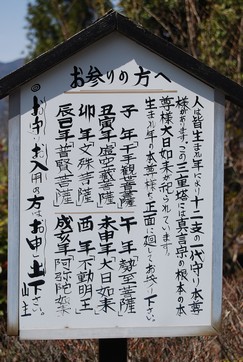 お参りの方へ
人は皆生まれ年により十二支の代守り本尊
様があります。この三重塔には真言宗の根本の本
尊様大日如来が祀られています。
生まれ年の本尊様を正面に廻してお参り下さい。
子年「千手観世音菩薩」
丑寅年「虚空蔵菩薩」
卯年「文殊菩薩」
辰巳年「普賢菩薩」
午年「勢至菩薩」
未申年「大日如来」
酉年「不動明王」
戌亥年「阿弥陀如来」
お守りお入用の方はお申し出下さい。
山主